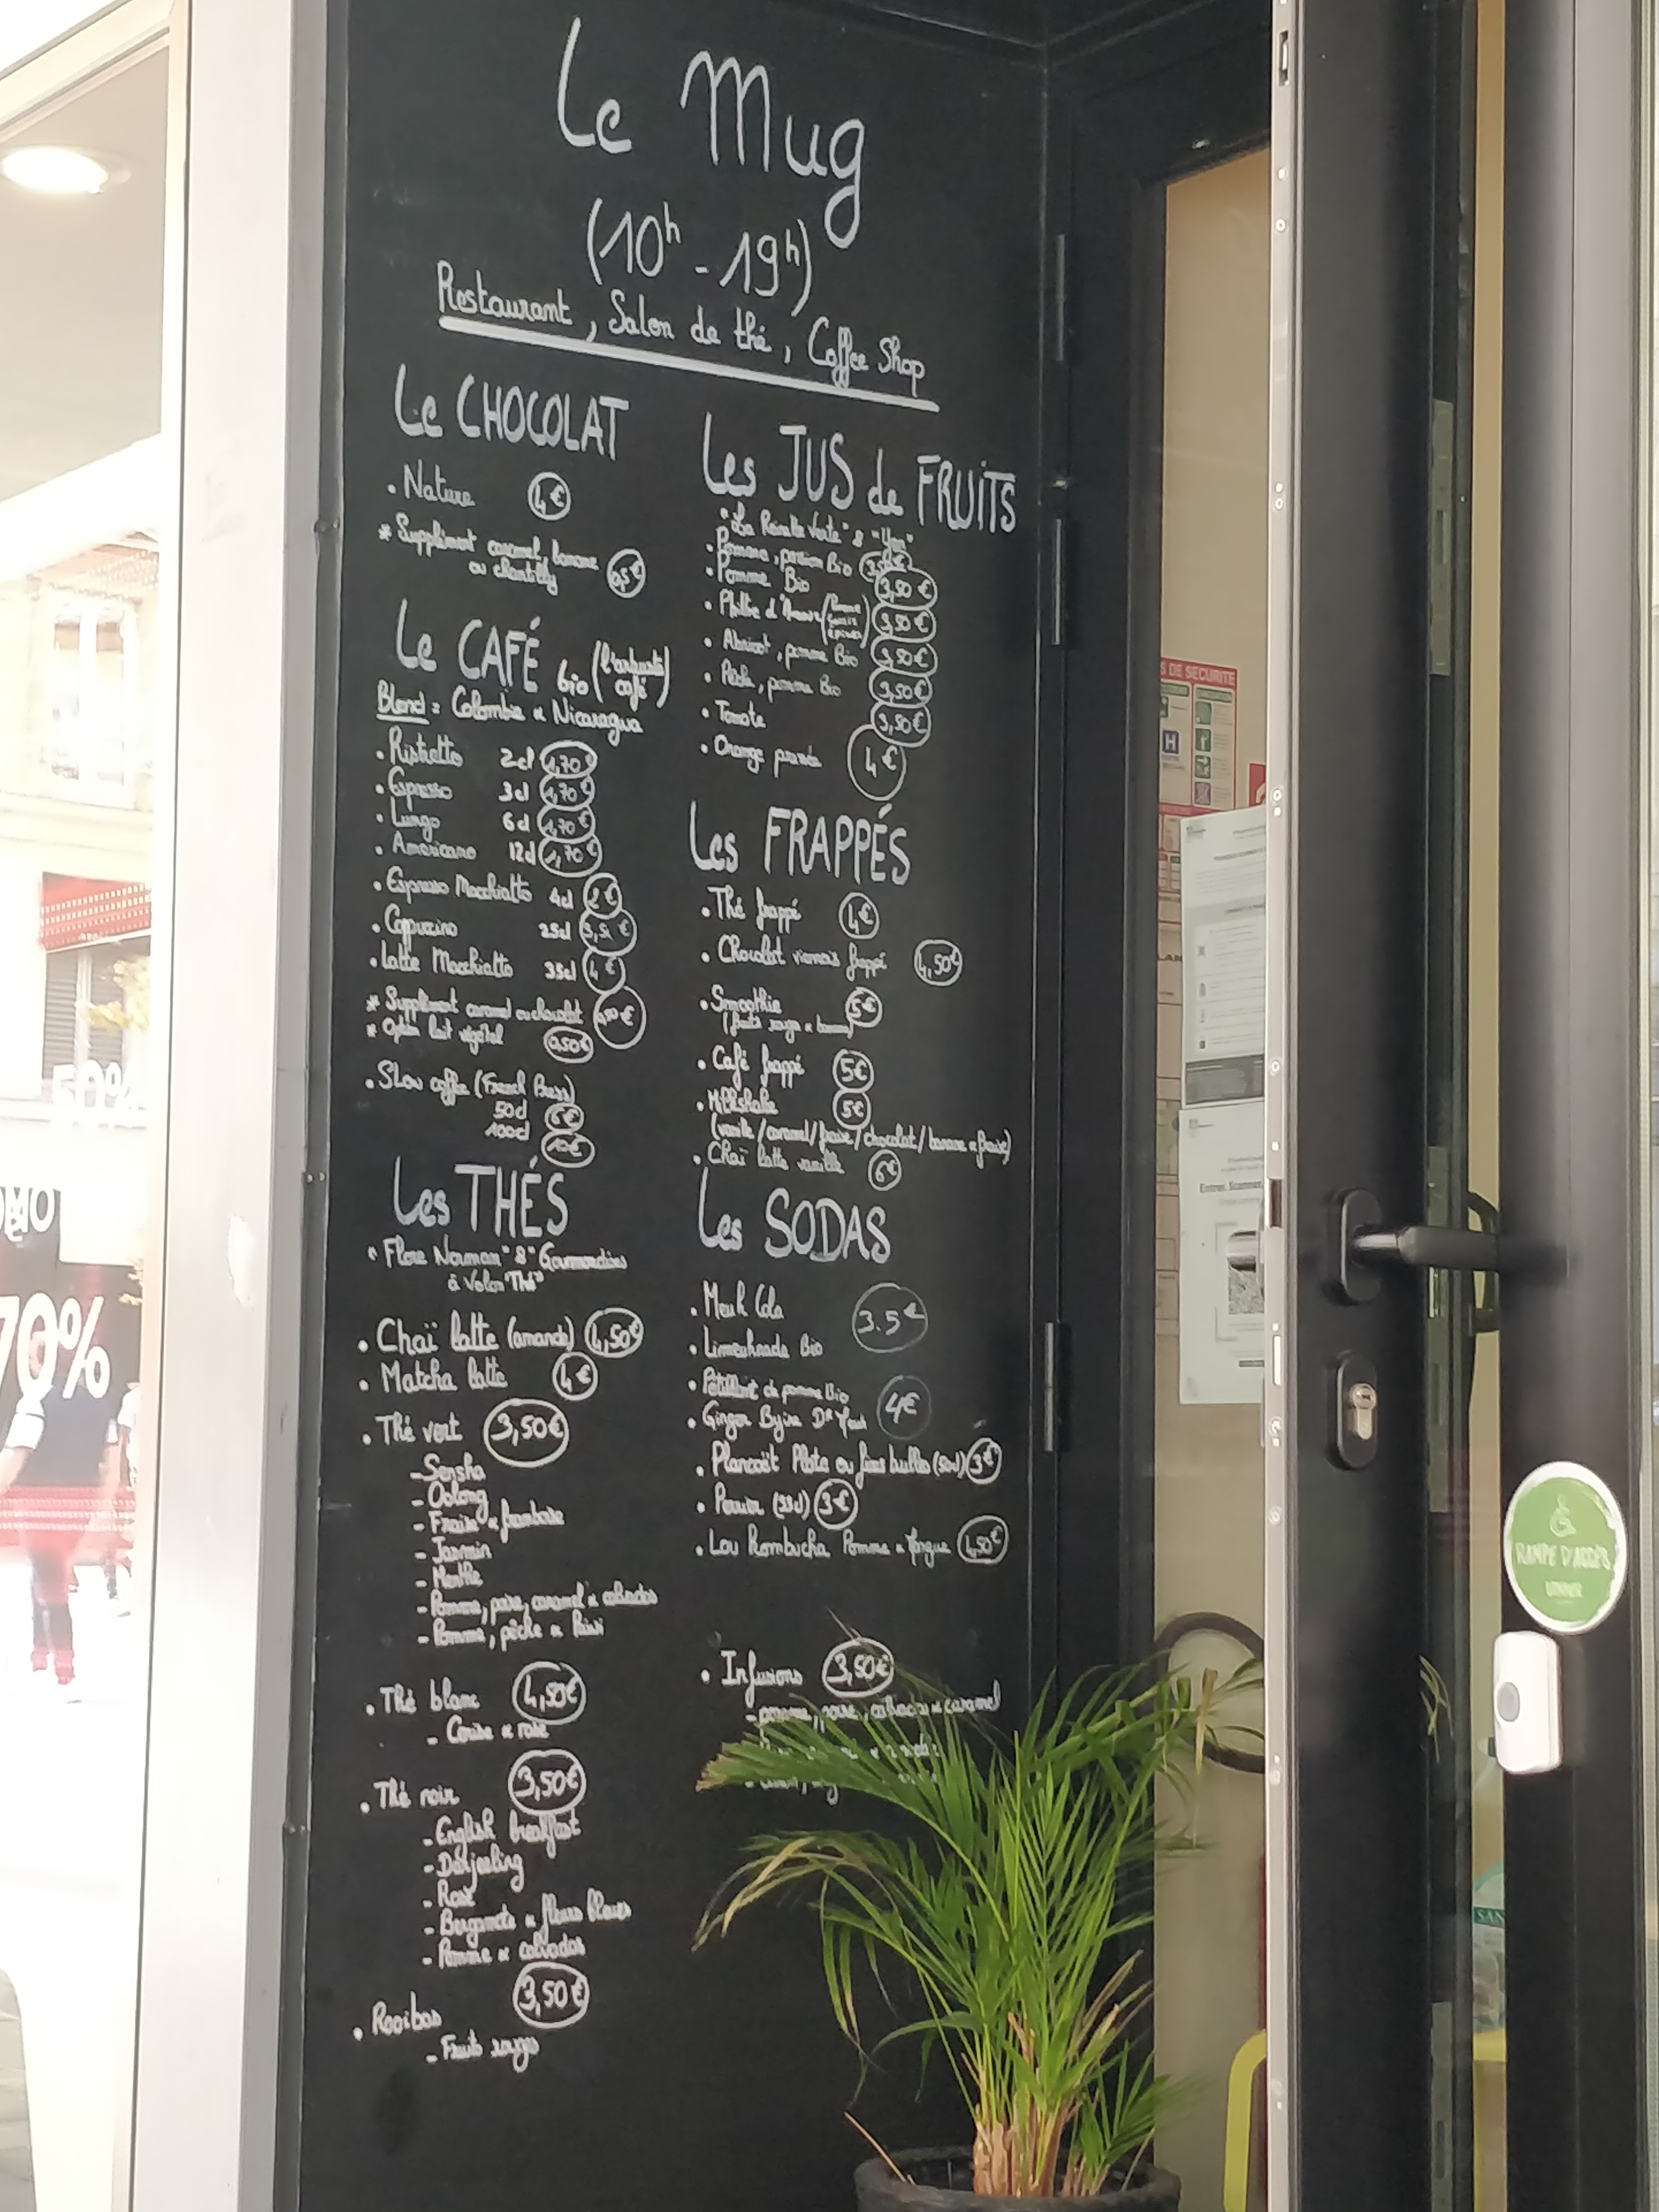 Le Mug
(10h - 19h)
Restaurant, Salon de thé, Coffee Shop
Le CHOCOLAT
• Nature 4€
* Supplément caramel, banane
ou chantilly 0,5€
Le CAFÉ bio (l'arbuste
café)
Blend = Colombie & Nicaragua
• Ristretto 2cl 1,70€
• Espresso 3cl 1,70€
• Lungo 6cl 1,70€
• Americano 12cl 1,70€
• Espresso Macchiatto 4cl 2€
• Cappucino 25cl
• Latte Macchiatto 35cl 4€
* Supplément caramel ou chocolat 0,50€
* Option lait végétal 0,50€
• Slow coffee (French Press)
50cl 6€
100cl
Les THÉS
"Flore Norman" & "Gourmandises
à Volon'Thé"
• Chaï latte (amande) 4,50€
• Matcha latte 4€
• Thé vert 3,50€
- Sensha
- Oolong
- Fraise & framboise
- Jasmin
- Menthe
- Pomme, poire, caramel & calvados
- Pomme, pêche & kiwi
• Thé blanc 4,50€
- Cerise & rose
• Thé noir 3,50€
- English breakfast
- Darjeeling
- Rose
- Bergamote & fleurs bleues
- Pomme & calvados
• Rooibos 3,50€
- Fruits rouges
Les JUS de FRUITS
"La Rainette Verte" &
• Pomme, Bio
• Pomme Bio 3,50€
• Philtre d'Amour (Pomme
épices) 3,50€
• Abricot, pomme Bio 3,50€
• Pêche, pomme Bio 3,50€
• Tomate 3,50€
• Orange pressée 4€
Les FRAPPÉS
• Thé frappé 4€
• Chocolat viennois frappé 4,50€
• Smoothie 5€
(fruits rouges & banane)
• Café frappé 5€
• Milkshake 5€
(vanille/caramel/fraise/chocolat/banane & fraise)
• Chaï latte vanille 6€
Les SODAS
• Meuh Cola 3.5€
• Limeuhnade Bio
• Pétillant de pomme Bio 4€
• Ginger
• Plancoët Plate ou fines bulles (50cl) 3€
• Perrier (33cl) 3€
• Lou Kombucha Pomme & 4,50€
• Infusions 3,50€
- pomme, poire, calvados & caramel
RAMPE D'ACCÈS
SONNER
S DE SECURITE
H
Entrer, Scanner,
SAN
50%
OMO
70%